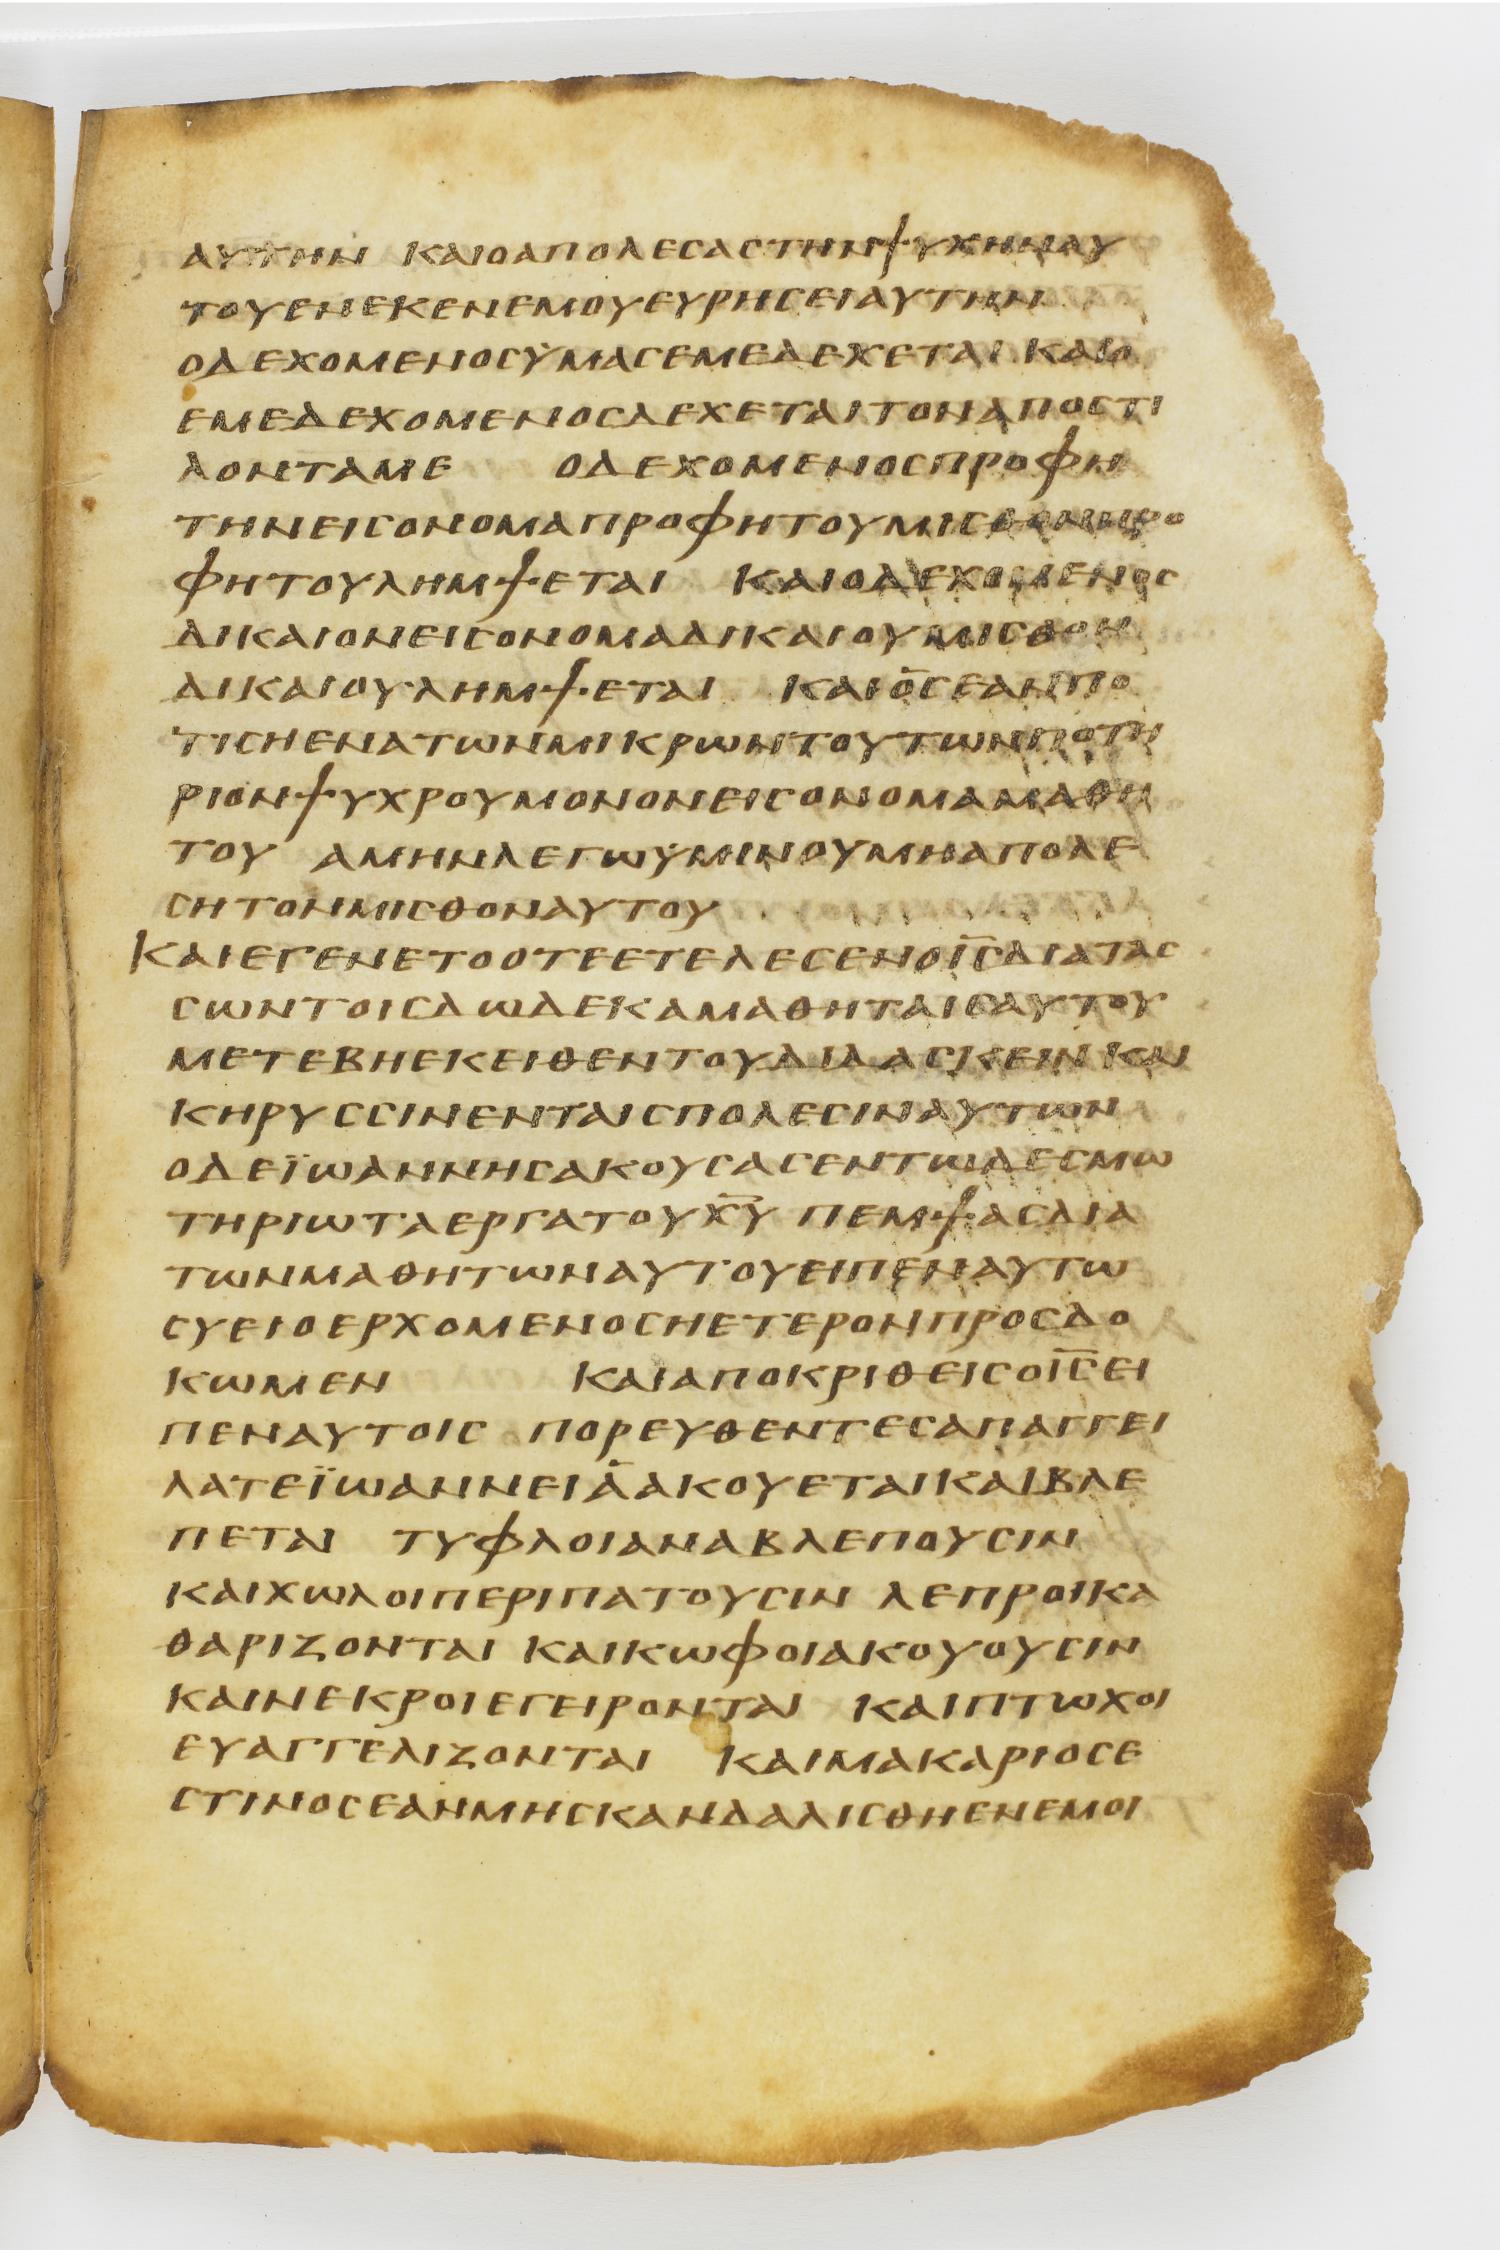 ΑΥΤΗΝ ΚΑΙΟΑΠΟΛΕϹΑϹΤΗΝΨΥΧΗΝΑΥ
ΤΟΥΕΝΕΚΕΝΕΜΟΥΕΥΡΗϹΕΙΑΥΤΗΝ
ΟΔΕΧΟΜΕΝΟϹΫΜΑϹΕΜΕΔΕΧΕΤΑΙ ΚΑΙΟ
ΕΜΕΔΕΧΟΜΕΝΟϹΔΕΧΕΤΑΙΤΟΝΑΠΟϹΤΙ
ΛΟΝΤΑΜΕ ΟΔΕΧΟΜΕΝΟϹΠΡΟΦΗ
ΤΗΝΕΙϹΟΝΟΜΑΠΡΟΦΗΤΟΥΜΙϹΘΟΝΠΡΟ
ΦΗΤΟΥΛΗΜΨΕΤΑΙ ΚΑΙΟΔΕΧΟΜΕΝΟϹ
ΔΙΚΑΙΟΝΕΙϹΟΝΟΜΑΔΙΚΑΙΟΥΜΙϹΘΟΝ
ΔΙΚΑΙΟΥΛΗΜΨΕΤΑΙ ΚΑΙΟ̄ϹΕΑΝΠΟ
ΤΙϹΗΕΝΑΤΩΝΜΙΚΡΩΝΤΟΥΤΩΝΠΟΤΗ
ΡΙΟΝΨΥΧΡΟΥΜΟΝΟΝΕΙϹΟΝΟΜΑΜΑΘΗ
ΤΟΥ ΑΜΗΝΛΕΓΩΫΜΙΝΟΥΜΗΑΠΟΛΕ
ϹΗΤΟΝΜΙϹΘΟΝΑΥΤΟΥ
ΚΑΙΕΓΕΝΕΤΟΟΤΕΕΤΕΛΕϹΕΝΟΙ̅Ϲ̅ΔΙΑΤΑϹ
ϹΩΝΤΟΙϹΔΩΔΕΚΑΜΑΘΗΤΑΙϹΑΥΤΟΥ
ΜΕΤΕΒΗΕΚΕΙΘΕΝΤΟΥΔΙΔΑϹΚΕΙΝΚΑΙ
ΚΗΡΥϹϹΙΝΕΝΤΑΙϹΠΟΛΕϹΙΝΑΥΤΩΝ
ΟΔΕΪΩΑΝΝΗϹΑΚΟΥϹΑϹΕΝΤΩΔΕϹΜΩ
ΤΗΡΙΩΤΑΕΡΓΑΤΟΥΧ̅Υ̅ ΠΕΜΨΑϹΔΙΑ
ΤΩΝΜΑΘΗΤΩΝΑΥΤΟΥΕΙΠΕΝΑΥΤΩ
ϹΥΕΙΟΕΡΧΟΜΕΝΟϹΗΕΤΕΡΟΝΠΡΟϹΔΟ
ΚΩΜΕΝ ΚΑΙΑΠΟΚΡΙΘΕΙϹΟΙ̅Ϲ̅ΕΙ
ΠΕΝΑΥΤΟΙϹ ΠΟΡΕΥΘΕΝΤΕϹΑΠΑΓΓΕΙ
ΛΑΤΕΪΩΑΝΝΕΙᾹΑΚΟΥΕΤΑΙΚΑΙΒΛΕ
ΠΕΤΑΙ ΤΥΦΛΟΙΑΝΑΒΛΕΠΟΥϹΙΝ
ΚΑΙΧΩΛΟΙΠΕΡΙΠΑΤΟΥϹΙΝ ΛΕΠΡΟΙΚΑ
ΘΑΡΙΖΟΝΤΑΙ ΚΑΙΚΩΦΟΙΑΚΟΥΟΥϹΙΝ
ΚΑΙΝΕΚΡΟΙΕΓΕΙΡΟΝΤΑΙ ΚΑΙΠΤΩΧΟΙ
ΕΥΑΓΓΕΛΙΖΟΝΤΑΙ ΚΑΙΜΑΚΑΡΙΟϹΕ
ϹΤΙΝΟϹΕΑΝΜΗϹΚΑΝΔΑΛΙϹΘΗΕΝΕΜΟΙ